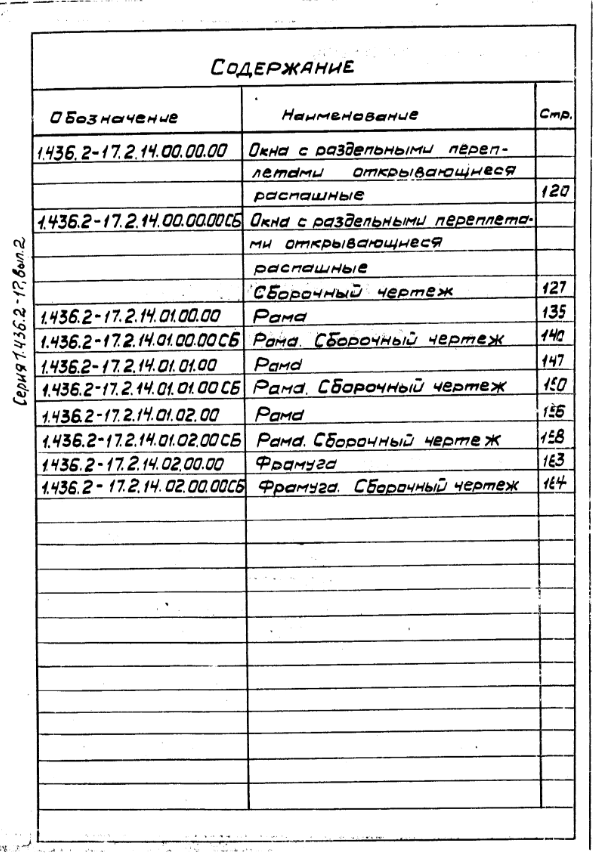 Содержание
Обозначение Наименование Стр.
1.436.2-17.2.14.00.00.00 Окна с раздельными переп-
летами открывающиеся
распашные 120
1.436.2-17.2.14.00.00.00СБ Окна с раздельными переплета-
ми открывающиеся
распашные
Сборочный чертеж 127
1.436.2-17.2.14.01.00.00 Рама 135
1.436.2-17.2.14.01.00.00СБ Рама. Сборочный чертеж 140
1.436.2-17.2.14.01.01.00 Рама 147
1.436.2-17.2.14.01.01.00СБ Рама. Сборочный чертеж 150
1.436.2-17.2.14.01.02.00 Рама 156
1.436.2-17.2.14.01.02.00СБ Рама. Сборочный чертеж 158
1.436.2-17.2.14.02.00.00 Фрамуга 163
1.436.2-17.2.14.02.00.00СБ Фрамуга. Сборочный чертеж 164
Серия 1.436.2-17, вып.2